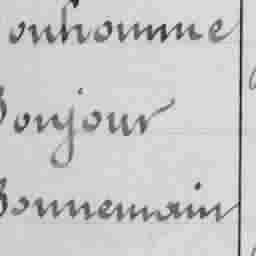 Bonhomme
Bonjour
Bonnemain